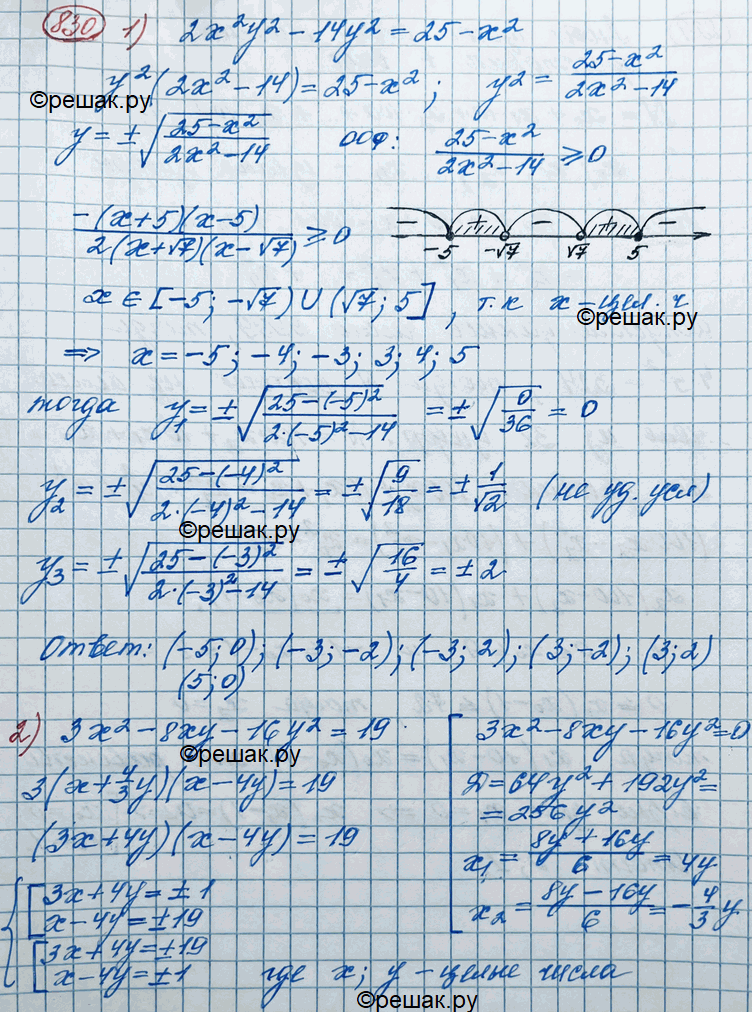 830 1) 2x²y² − 14y² = 25 − x²
y²(2x² − 14) = 25 − x² ; y² = (25 − x²)/(2x² − 14)
©решак.ру
y = ±√((25 − x²)/(2x² − 14)) ООФ: (25 − x²)/(2x² − 14) ⩾ 0
(−(x + 5)(x − 5))/(2(x + √7)(x − √7)) ⩾ 0 − + − + −
−5 −√7 √7 5
x ∈ [−5; −√7) ∪ (√7; 5], т.к x − цел. ч
©решак.ру
⇒ x = −5; −4; −3; 3; 4; 5
тогда y₁ = ±√((25 − (−5)²)/(2·(−5)² − 14)) = ±√(0/36) = 0
y₂ = ±√((25 − (−4)²)/(2·(−4)² − 14)) = ±√(9/18) = ±1/√2 (не уд. усл)
©решак.ру
y₃ = ±√((25 − (−3)²)/(2·(−3)² − 14)) = ±√(16/4) = ±2
Ответ: (−5; 0); (−3; −2); (−3; 2); (3; −2); (3; 2)
(5; 0)
2) 3x² − 8xy − 16y² = 19
©решак.ру
3(x + 4/3y)(x − 4y) = 19
(3x + 4y)(x − 4y) = 19
3x² − 8xy − 16y² = 0
Д = 64y² + 192y² =
= 256y²
x₁ = (8y + 16y)/6 = 4y
x₂ = (8y − 16y)/6 = −4/3y
{ [ 3x + 4y = ±1
x − 4y = ±19
[ 3x + 4y = ±19
x − 4y = ±1 где x; y − целые числа
©решак.ру